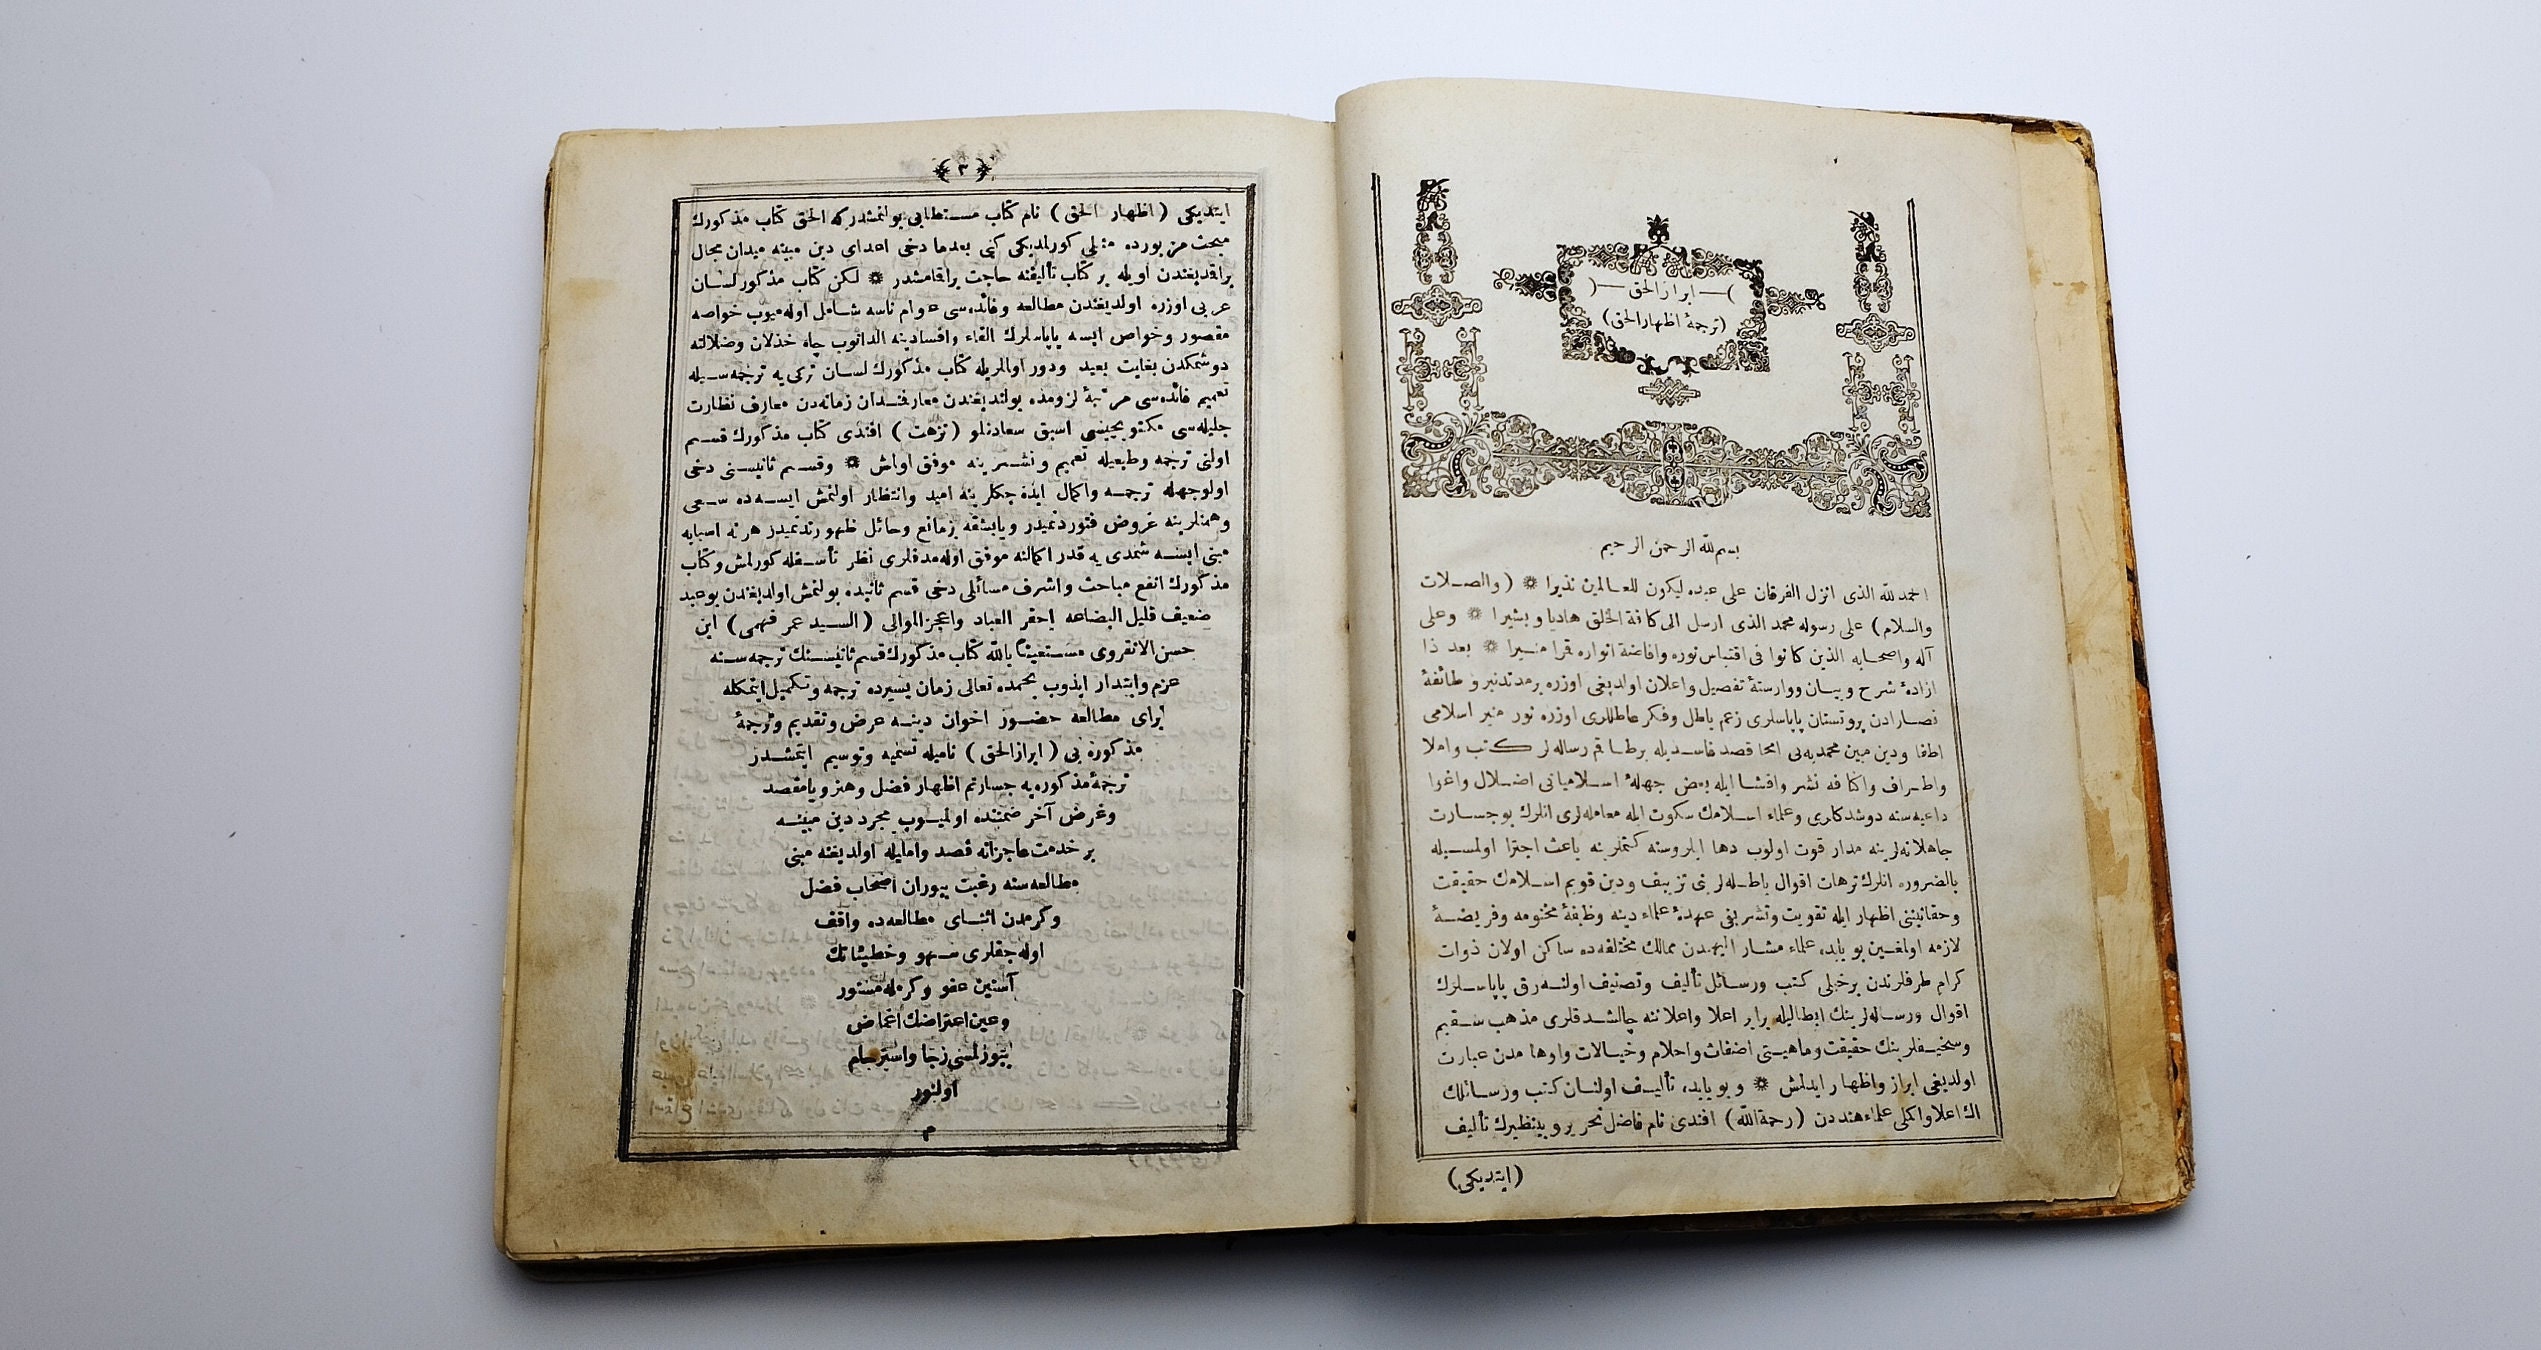 ابرازالحق
(ترجمهٔ اظهارالحق)
بسم الله الرحمن الرحيم
الحمد لله الذى انزل الفرقان على عبده ليكون للعالمين نذيرا ۞ (والصلات
والسلام) على رسوله محمد الذى ارسل الى كافة الخلق هاديا و بشيرا ۞ وعلى
آله واصحابه الذين كانوا فى اقتباس نوره وافاضة انواره قرا منيرا ۞ بعد ذا
ازادهٔ شرح و بيان ووارستهٔ تفصيل واعلان اولديغى اوزره برمدتدنبر و طائفهٔ
نصارادن پروتستان پاپاسلرى زعم باطل وفكر عاطللرى اوزره نور منير اسلامى
اطفا ودين مبين محمديه‌يى امحا قصد فاسديله برطاقم رساله‌لر كتب واملا
واطراف واكنافه نشر وافشا ايله بعض جهلهٔ اسلاميانى اضلال واغرا
داعيه‌سنه دوشدكلرى وعلماء اسلامك سكوت ايله معامله‌لرى انلرك بو جسارت
جاهلانه‌لرينه مدار قوت اولوب دها ايلروسنه كتملرينه باعث اجترا اولمسيله
بالضروره انلرك ترهات اقوال باطله‌لرينى تزييف ودين قويم اسلامك حقيقت
وحقانيتنى اظهار ايله تقويت وتشريفى عهدهٔ علماء دينه وظيفهٔ مختومه وفريضهٔ
لازمه اولمغين بو بابده علماء مشار اليهمدن ممالك مختلفه‌ده ساكن اولان ذوات
كرام طرفلرندن برخيلى كتب ورسائل تأليف وتصنيف اولنه‌رق پاپاسلرك
اقوال ورساله‌لرينك ابطاليله برابر اعلا واعلاننه چالشدقلرى مذهب سقيم
وسخيفلرينك حقيقت وماهيتى اضغاث واحلام وخيالات واوهامدن عبارت
اولديغى ابراز واظهار ايدلمش ۞ و بو بابده تأليف اولنان كتب ورسائلك
اك اعلا واكملى علماء هنددن (رحمة الله) افندى نام فاضل نحرير و بينظيرك تأليف
(ايتديكى)
﴿٣﴾
ايتديكى (اظهار الحق) نام كتاب مستطابى بولنمشدركه الحق كتاب مذكورك
مبحث مزبورده مثلى كورلمديكى كبى بعدما دخى اعداى دين مبينه ميدان مجال
براقديغندن اويله بر كتاب تأليفنه حاجت براقمامشدر ۞ لكن كتاب مذكور لسان
عربى اوزره اولديغندن مطالعه وفائده‌سى عوام ناسه شامل اوله‌ميوب خواصه
مقصور وخواص ايسه پاپاسلرك القاء وافسادينه الدانوب چاه خذلان وضلالته
دوشمكدن بغايت بعيد ودور اولملريله كتاب مذكورك لسان تركى‌يه ترجمه‌سيله
تعميم فائده‌سى مرتبهٔ لزومده بولنديغندن معارفمندان زمانه‌دن معارف نظارت
جليله‌سى مكتوبجيسى اسبق سعادتلو (نزهت) افندى كتاب مذكورك قسم
اولنى ترجمه وطبعيله تعميم ونشرينه موفق اولمش ۞ وقسم ثانيسنى دخى
اولوجهله ترجمه واكمال ايده‌جكلرينه اميد وانتظار اولنمش ايسه‌ده سعى
وهمتلرينه عروض فتوردنميدر ويابشقه برمانع وحائل ظهورندنميدر هر نه اسبابه
مبنى ايسه شمدى‌يه قدر اكمالنه موفق اوله‌مدقلرى نظر تأسفله كورلمش وكتاب
مذكورك انفع مباحث واشرف مسائلى دخى قسم ثانيده بولنمش اولديغندن بو عبد
ضعيف قليل البضاعه احقر العباد واعجز الموالى (السيد عمر فهمى) ابن
حسن الانقروى مستعينا بالله كتاب مذكورك قسم ثانيسنك ترجمه‌سنه
عزم وابتدار ايدوب بحمده تعالى زمان يسيرده ترجمه وتكميل ايتمكله
براى مطالعه حضور اخوان دينه عرض وتقديم وترجمهٔ
مذكوره‌يى (ابرازالحق) ناميله تسميه وتوسيم ايتمشدر
ترجمهٔ مذكوره‌يه جسارتم اظهار فضل وهنر ويا مقصد
وغرض آخر ضمننده اولميوب مجرد دين مبينه
بر خدمت عاجزانه قصد واملیله اولديغنه مبنى
مطالعه‌سنه رغبت بيوران اصحاب فضل
وكرمدن اثناى مطالعه‌ده واقف
اوله‌جقلرى سهو وخطيئاتك
آستين عفو وكرمله مستور
وعين اعتراضك اغماض
بيورلمسى رجا واسترحام
اولنور
م